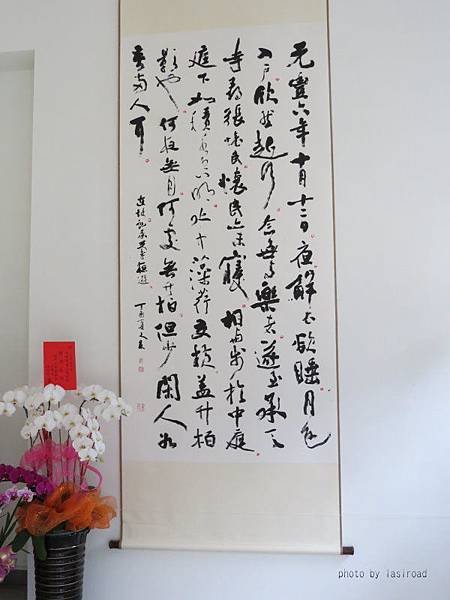 元豐六年十月十二日夜解衣欲睡月色
入戶欣然起行念無與樂者遂至承天
寺尋張懷民懷民亦未寢相與步於中庭
庭下如積水空明水中藻荇交橫蓋竹柏
影也何夜無月何處無竹柏但少閑人如
吾兩人耳
東坡記承天寺夜遊 丁酉夏
photo by lasiroad